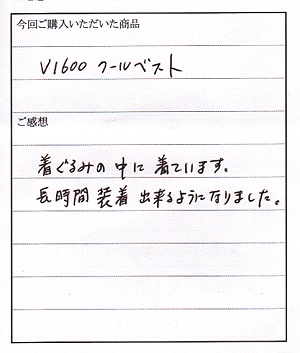 今回ご購入いただいた商品
V1600 クールベスト
ご感想
着ぐるみの中に着ています。
長時間装着出来るようになりました。